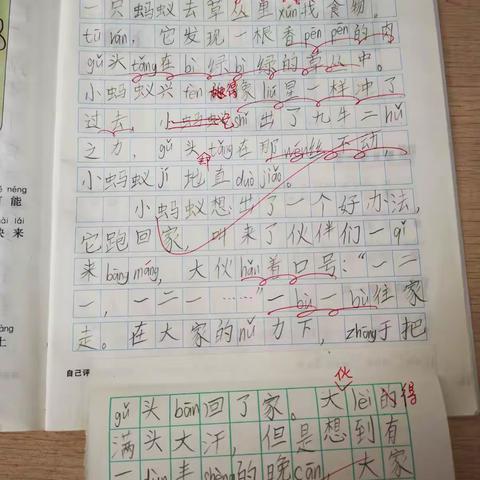 一只蚂蚁去草丛里xún找食物。
tū rán,它发现一根香pēn pēn的肉
gǔ头tǎng在bì绿bì绿的草丛中。
小蚂蚁兴fèn得象liú星一样冲了
过去。小蚂蚁它shǐ出了九牛二hǔ
之力,gǔ头却tǎng在那wén丝不动,
小蚂蚁jí地直duò jiǎo。
小蚂蚁想出了一个好办法,
它跑回家,叫来了伙伴们一qǐ
来bāng máng,大伙hǎn着口号:“一二
一,一二一……”一bù一bù往家
走。在大家的nǔ力下,zhōng于把
自己评
gǔ头bān回了家。大伙lèi的得
满头大汗,但是想到有
的晚cān,大家
néng
可能
lái
快来
土